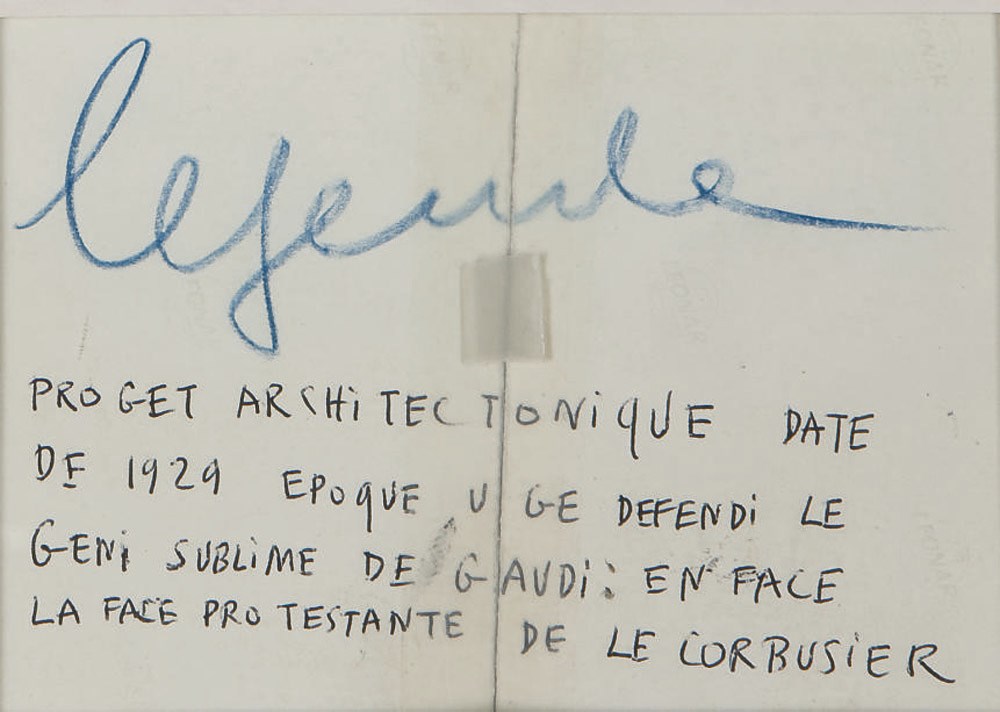 legende
PROGET ARCHiTECTONiQUE DATE
DE 1929 EPOQUE U GE DEFENDi LE
GENi SUBLiME DE GAUDi: EN FACE
LA FACE PROTESTANTE DE LE CORBUSiER